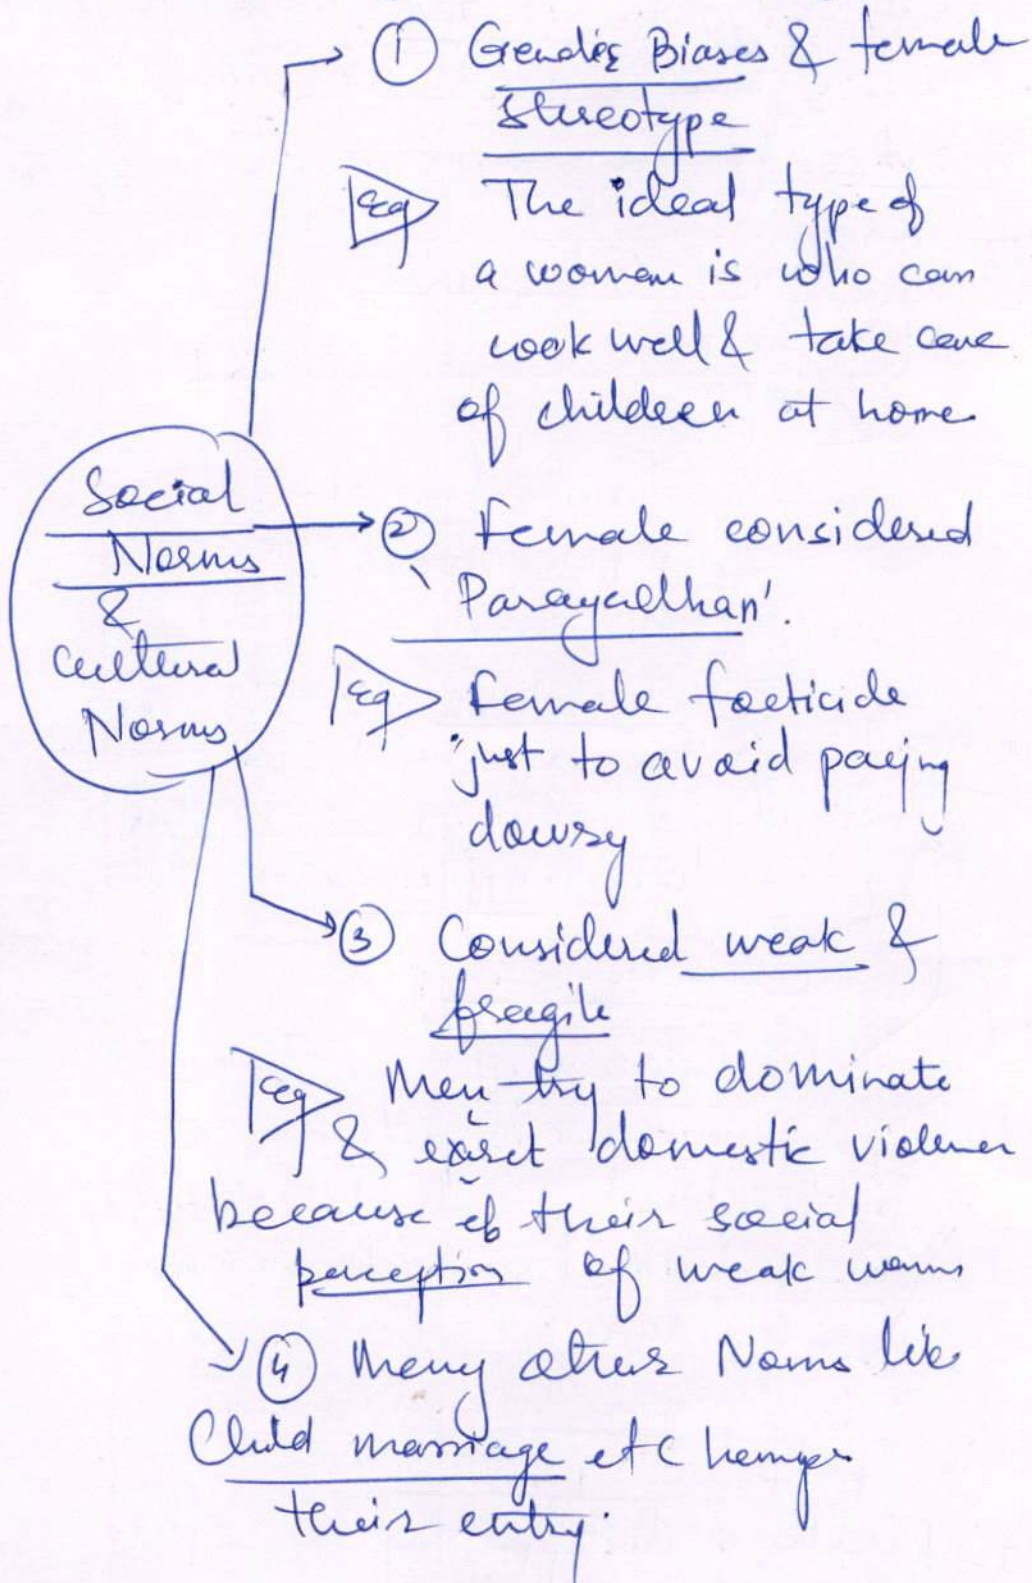 Social
Norms
&
Cultural
Norms
① Gender Biases & female
stereotype
Eg The ideal type of
a woman is who can
cook well & take care
of children at home
② Female considered
'Parayadhan'.
Eg Female foeticide
just to avoid paying
dowry
③ Considered weak &
fragile
Eg Men try to dominate
& exert domestic violence
because of their social
perception of weak
④ Many other Norms like
Child marriage etc hamper
their entry.